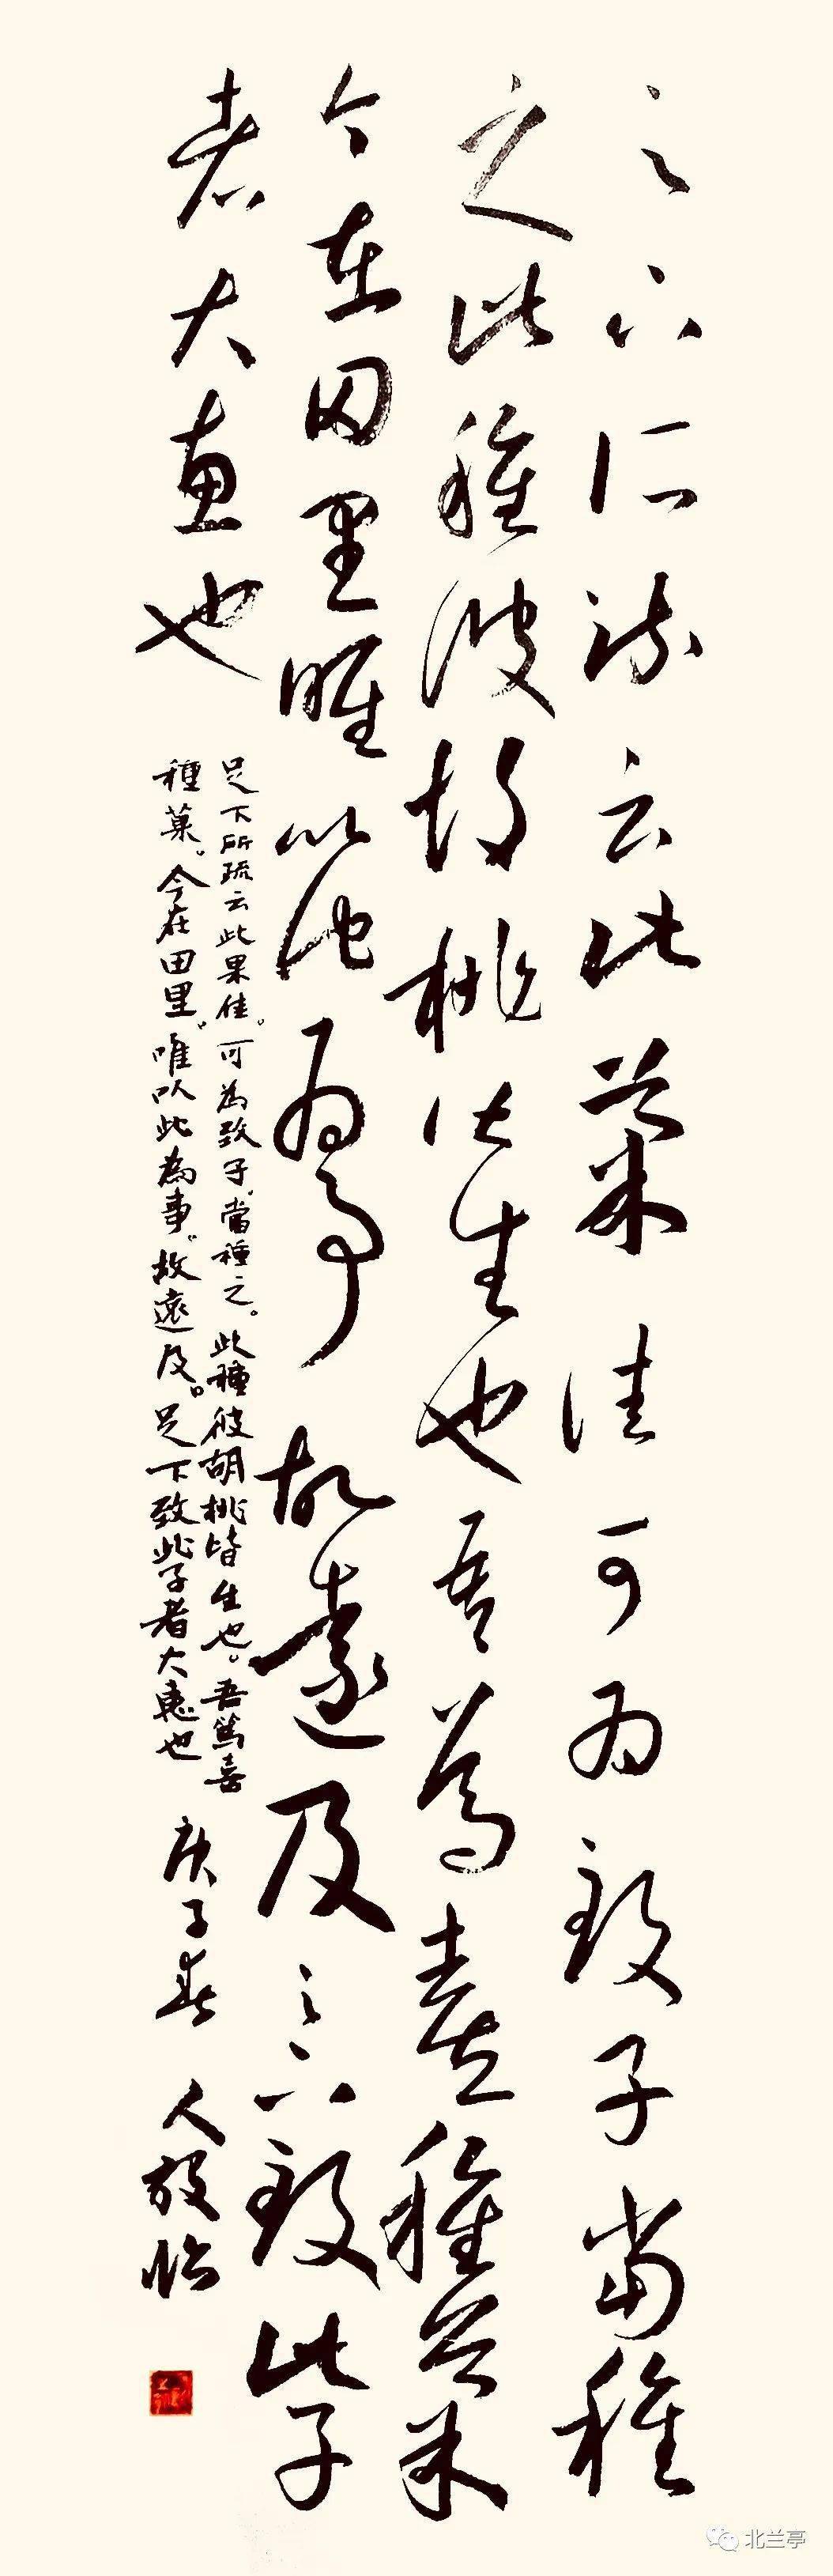 足下所疏云此菓佳可為致子當種
之此種彼胡桃皆生也吾篤喜種菓
今在田里唯以此為事故遠及足下致此子
者大惠也
足下所疏云此果佳。可為致子，當種之。此種彼胡桃皆生也。吾篤喜
種菓。今在田里，唯以此為事，故遠及。足下致此子者大惠也
庚子春 人放临
北兰亭